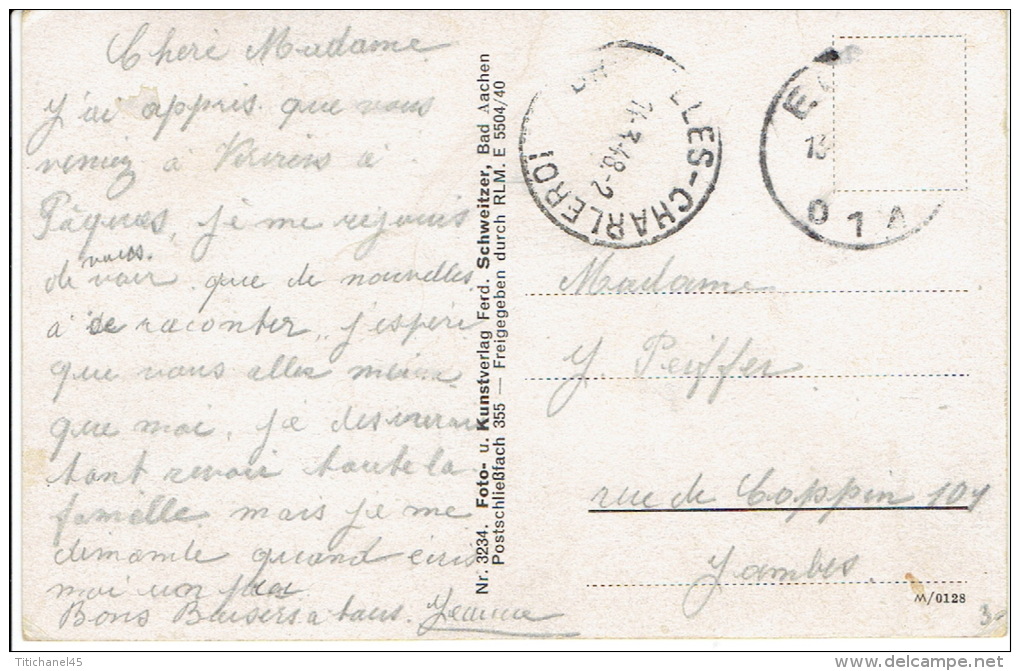 Chere Madame
J'ai appris que vous
veniez à Verviers à
Pâques, je me rejouis
de vous voir que de nouvelles
à se raconter, j'espère
que vous alles mieux
que moi, je desirerai
tant revoir toute la
famille mais je me
demande quand écris
moi un
Bons Baisers a tous. Jeanne
Nr. 3234. Foto- u. Kunstverlag Ferd. Schweitzer, Bad Aachen
Postschließfach 355 — Freigegeben durch RLM. E 5504/40
ELLES-CHARLEROI
48-2
13
0 1 A
Madame
J. Peiffer
rue de Coppin 104
Jambes.
M/0128
Titichanel45
delcampe.net